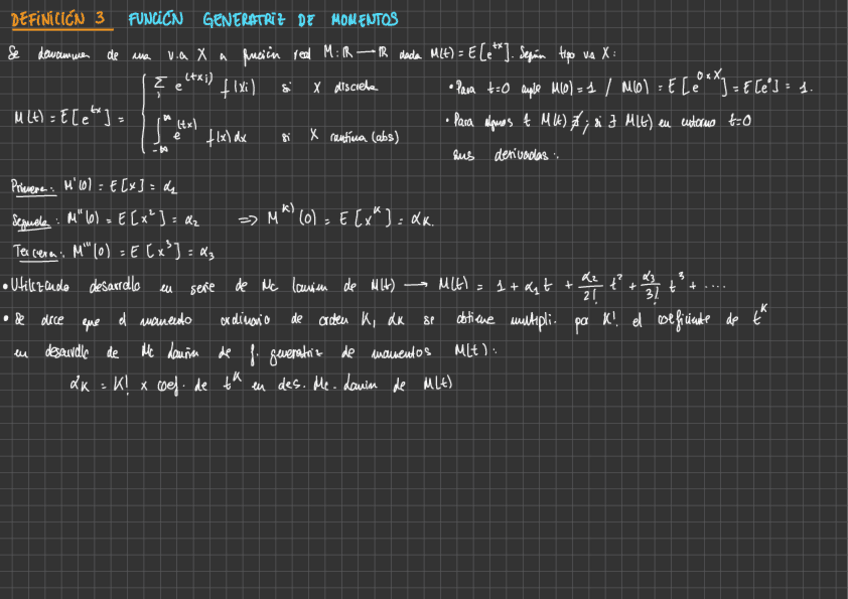 DEFINICIÓN 3 FUNCIÓN GENERATRIZ DE MOMENTOS
Se de una v.a X a función real M: ℝ → ℝ dada M(t) = E[e^{tx}]. Según tipo va X:
M(t) = E[e^{tx}] = { Σ_i e^{(t x_i)} f(x_i) si X discreta
∫_{-∞}^{∞} e^{(tx)} f(x) dx si X continua (abs)
• Para t=0 cumple M(0) = 1 / M(0) = E[e^{0×X}] = E[e^0] = 1.
• Para algunos t M(t) ∄; si ∃ M(t) en entorno t=0
sus derivadas:
Primera: M'(0) = E[x] = α₁
Segunda: M''(0) = E[x²] = α₂ ⇒ M^{K)}(0) = E[x^K] = αK.
Tercera: M'''(0) = E[x³] = α₃
• Utilizando desarrollo en serie de Mc Laurin de M(t) → M(t) = 1 + α₁t + α₂/2! t² + α₃/3! t³ + ....
• Se dice que el momento ordinario de orden K, αK se obtiene multipli. por K! el coeficiente de t^K
en desarrollo de Mc Laurin de f. generatriz de momentos M(t):
αK = K! x coef. de t^K en des. Mc. Laurin de M(t)